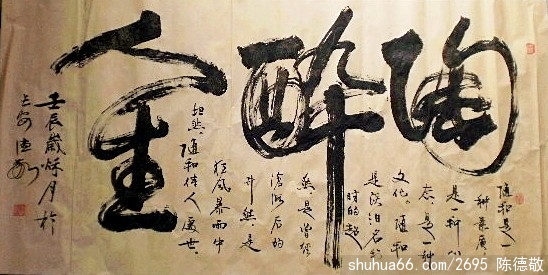 陶醉人生
随和是一
种素质
是一种心
态是一种
文化。随和
是淡泊名利
时的超
然是曾经
沧海后的
井然是
狂风暴雨中
坦然。随和待人处世。
壬辰歲秋月於
长安德敬
shuhua66.com/2695 陈德敬